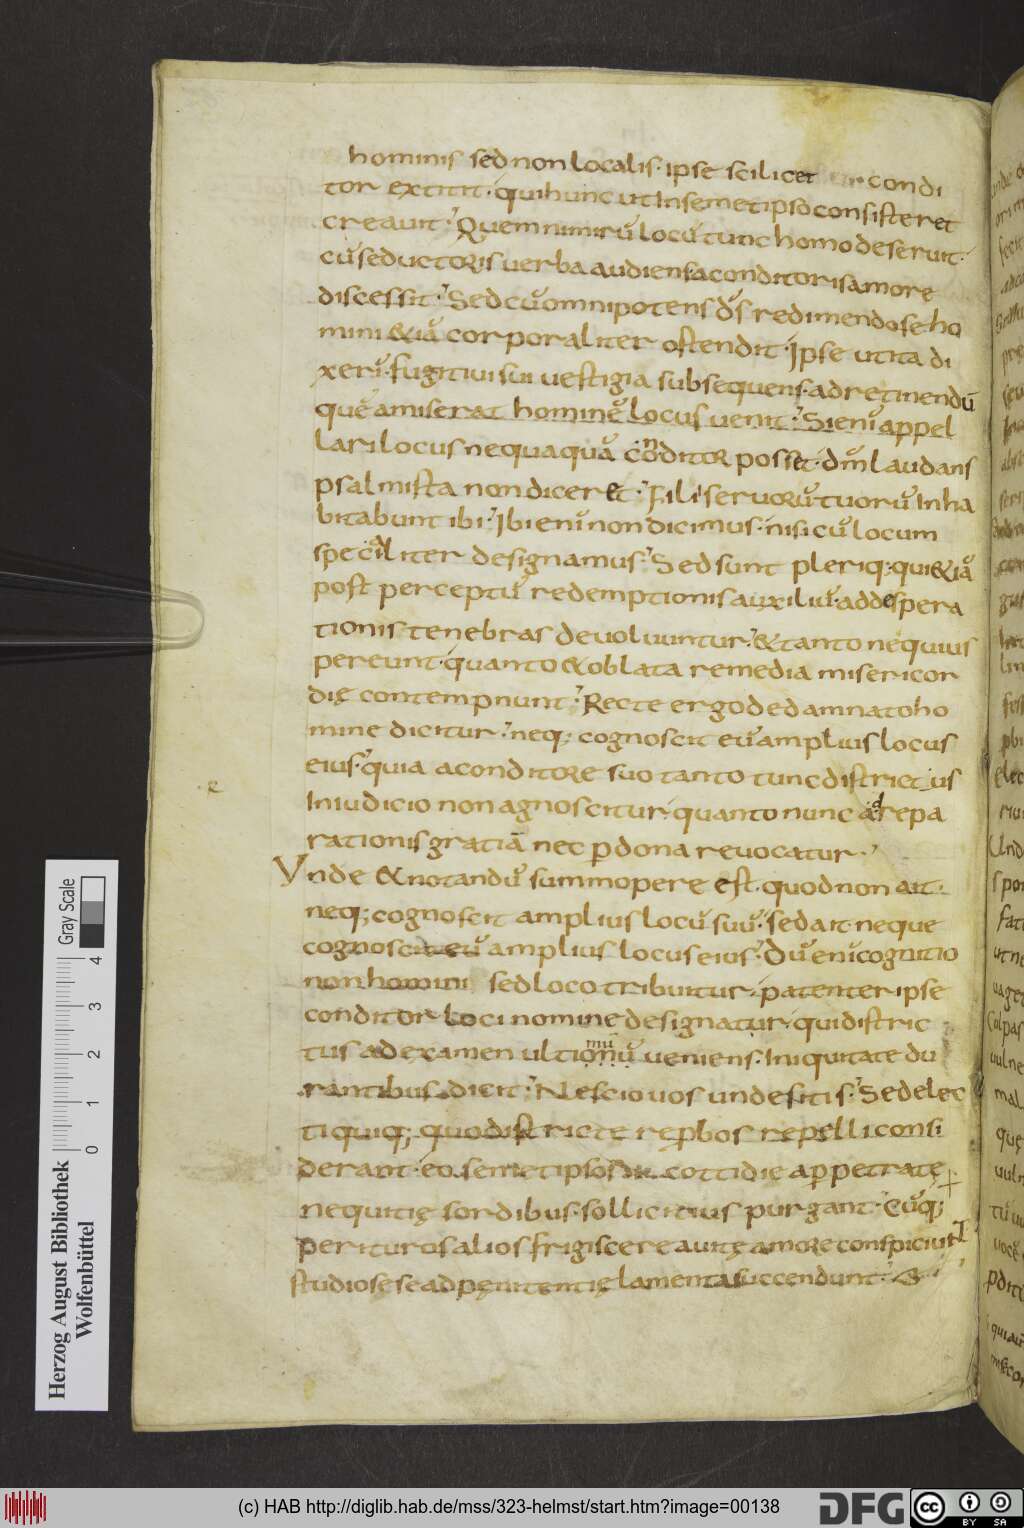 hominis sed non localis· ipse scilicet condi
tor extitit· qui hunc ut in semetipso consisteret
creauit· Quem nimirū locū tunc homo deseruit·
cū seductoris uerba audiens a conditoris amore
discessit· Sed cū omnipotens d̄s redimendo se ho
mini &iā corporaliter ostendit· Ipse ut ita di
xerī· fugitiui sui uestigia subsequens· ad retinendū
quē amiserat hominē locus uenit· Si enī appel
lari locus nequaquā conditor posset· dm̄ laudans
psalmista non diceret· Filii seruorū tuorū inha
bitabunt ibi· Ibi enī non dicimus· nisi cū locum
specialiter designamus· Sed sunt pleriq; qui &iā
post perceptū redemptionis auxiliū· ad despera
tionis tenebras deuoluuntur· & tanto nequius
pereunt· quanto & oblata remedia misericor
dię contempnunt· Recte ergo de damnato ho
mine dicitur· neq; cognoscit eū amplius locus
eius· quia a conditore suo tanto tunc districtius
In iudicio non agnoscitur· quanto nunc ad repa
rationis gratiā nec p dona reuocatur·
Vnde & notandū summopere est· quod non ait·
neq; cognoscit amplius locū suū· sed ait neque
cognoscit eū amplius locus eius· Dū enī cognitio
non homini sed loco tribuitur· patenter ipse
conditor loci nomine designatur· qui distric
tus ad examen ultionū mū ueniens· Iniquitate du
rantibus dicit· Nescio uos unde sitis· Sed elec
ti quiq; quo districte repbos repelli consi
derant· eo semetipsos cottidie a ppetratę
nequitię sordibus sollicitius purgant· Cūq;
perituros alios frigiscere a uitę amore conspiciunt
studiose se ad pęnitentię lamenta succendunt·
e
(c) HAB http://diglib.hab.de/mss/323-helmst/start.htm?image=00138
Herzog August Bibliothek
Wolfenbüttel
Gray Scale
0 1 2 3 4
DFG
cc BY SA